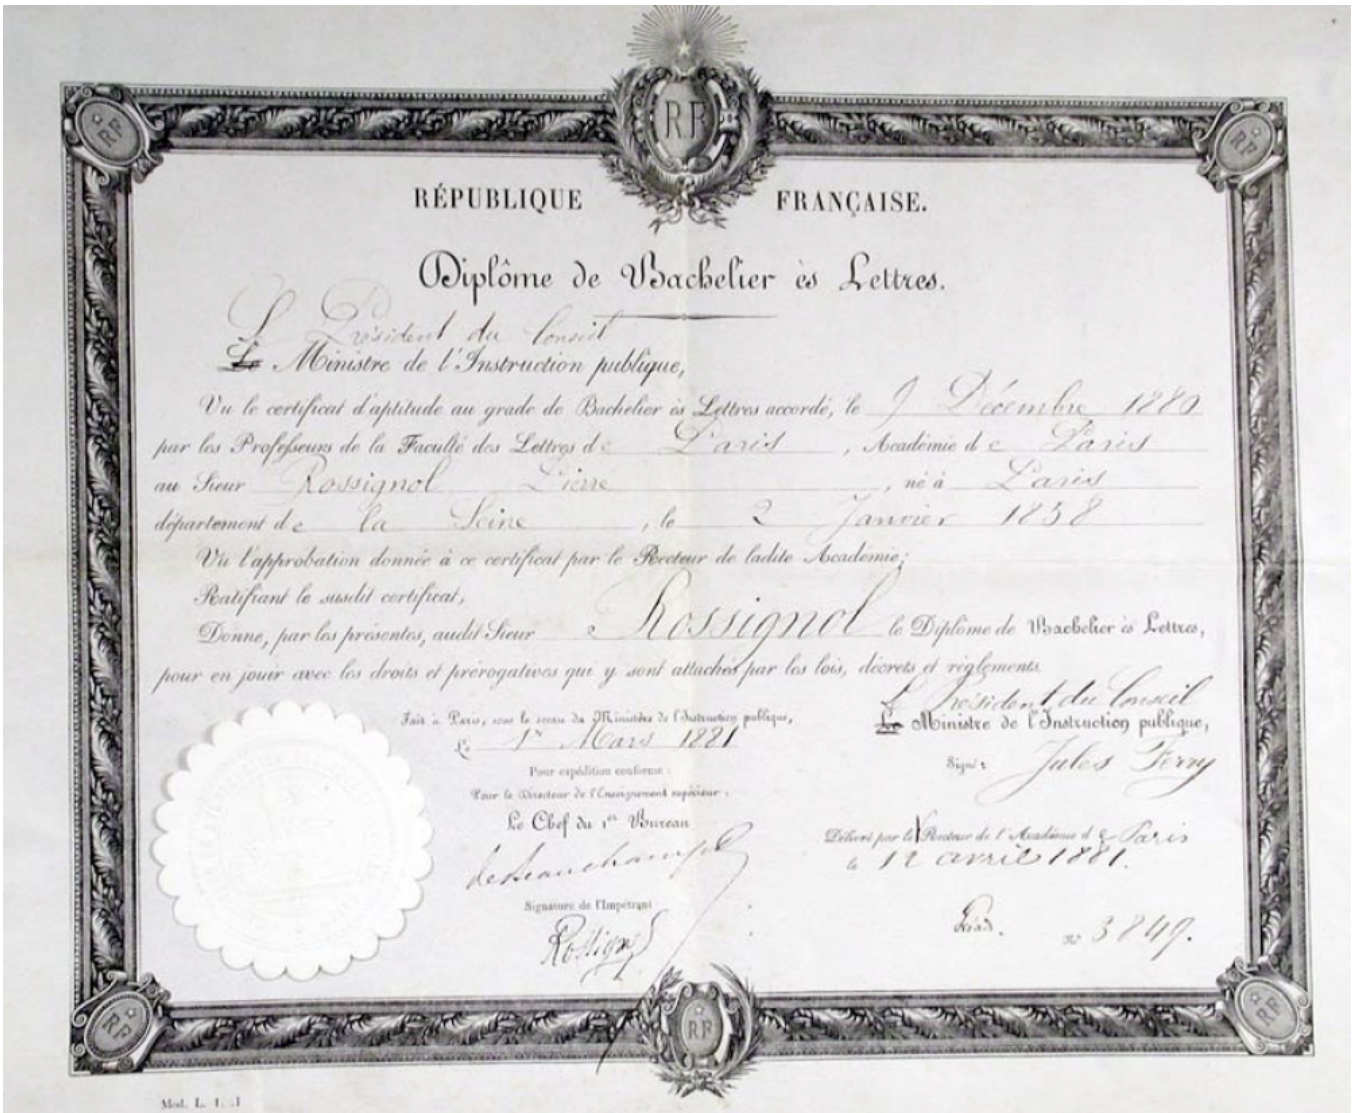 RF
RF
RF
RÉPUBLIQUE FRANÇAISE.
Diplôme de Bachelier ès Lettres.
L Président du Conseil
Le Ministre de l'Instruction publique,
Vu le certificat d'aptitude au grade de Bachelier ès Lettres accordé, le 9 Décembre 1880
par les Professeurs de la Faculté des Lettres de Paris, Académie de Paris
au Sieur Rossignol Pierre, né à Paris
département de la Seine, le 2 Janvier 1858
Vu l'approbation donnée à ce certificat par le Recteur de ladite Académie;
Ratifiant le susdit certificat,
Donne, par les présentes, audit Sieur Rossignol le Diplôme de Bachelier ès Lettres,
pour en jouir avec les droits et prérogatives qui y sont attachés par les lois, décrets et règlements.
Fait à Paris, sous le sceau du Ministère de l'Instruction publique,
Le 1er Mars 1881
L Président du Conseil
Le Ministre de l'Instruction publique,
Signé: Jules Ferry
Pour expédition conforme:
Pour le Directeur de l'Enseignement supérieur:
Le Chef du 1er Bureau
de Beauchamp
Délivré par le Recteur de l'Académie de Paris
le 12 avril 1881.
Signature de l'Impétrant
Rossignol
No 3849.
RF
RF
RF
Mod. L. 1.